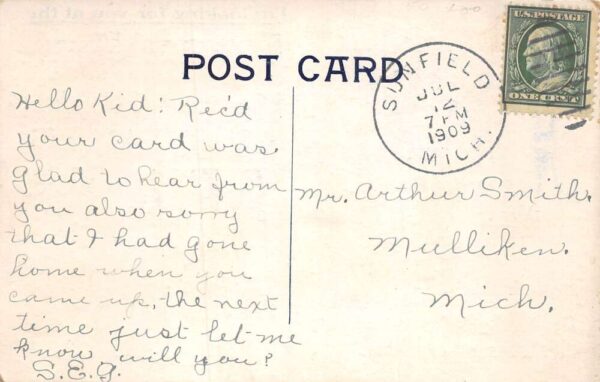 POST CARD
Hello Kid: Rec'd
your card was
glad to hear from
you also sorry
that I had gone
home when you
came up, the next
time just let me
know will you?
S.E.G.
SUNFIELD
JUL
12
7 PM
1909
MICH.
U.S. POSTAGE
ONE CENT
Mr. Arthur Smith,
Mulliken.
Mich.